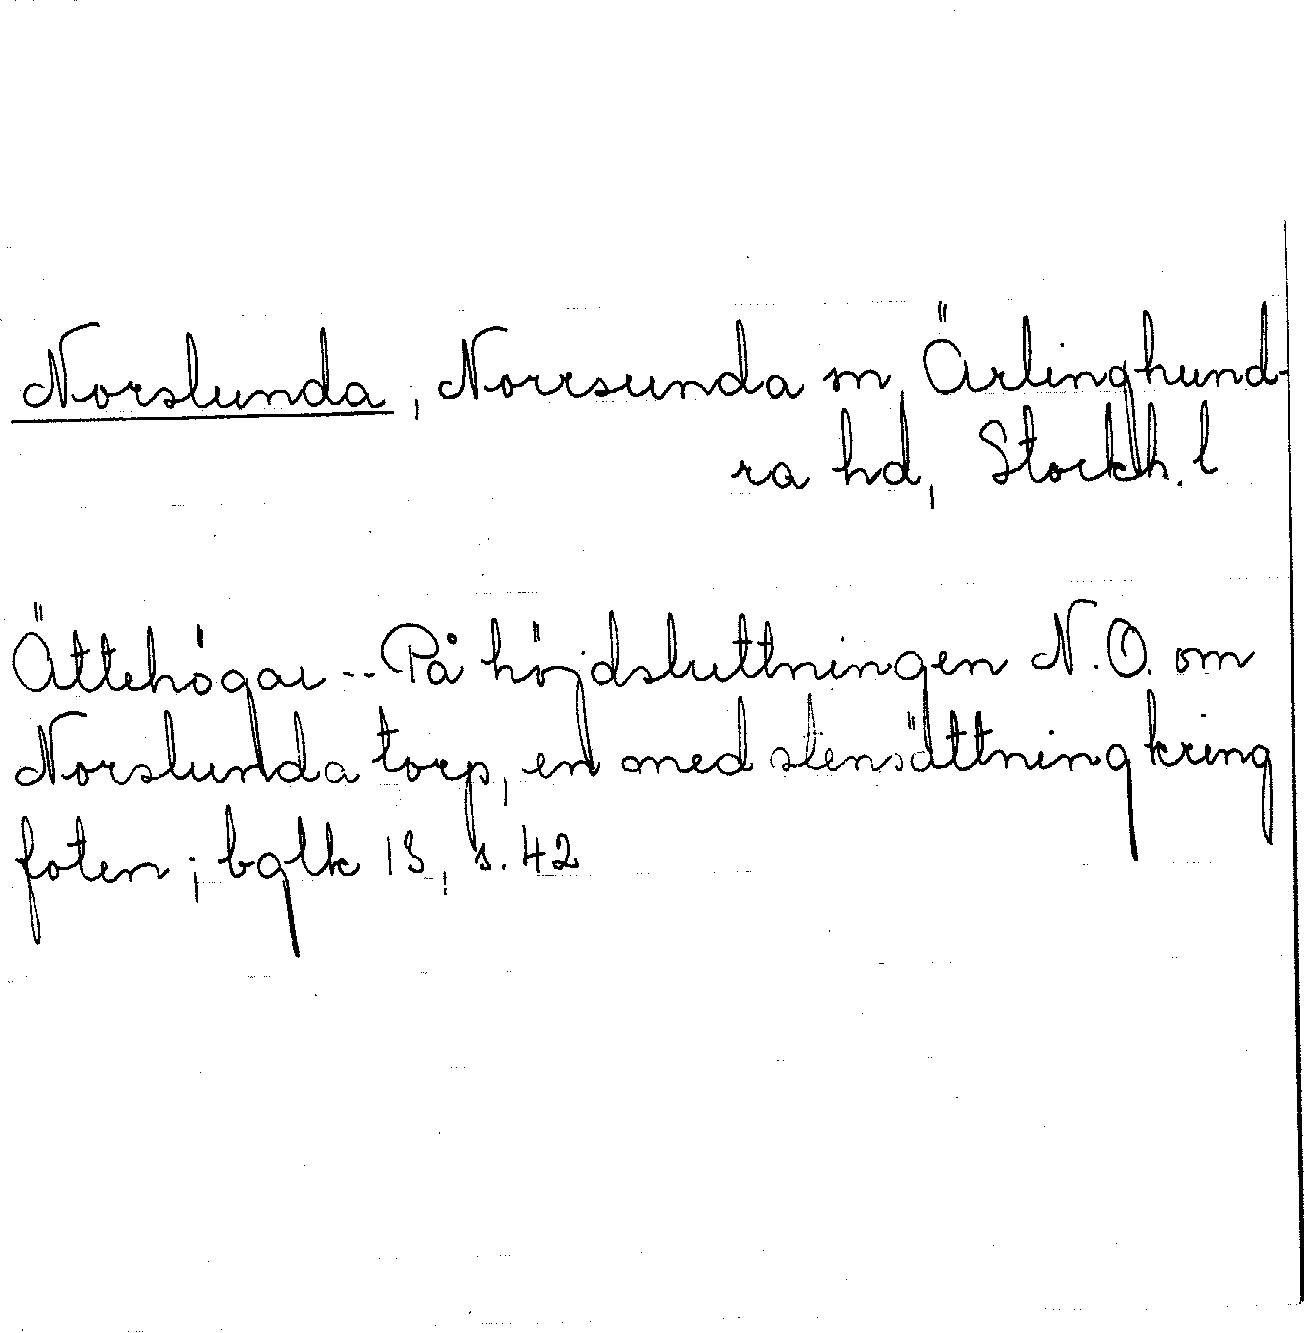 Norslunda, Norrsunda sn, Ärlinghund-
ra hd, Stockh. l
Ättehögar -- På höjdsluttningen N.O. om
Norslunda torp, en med stensättning kring
foten; bglk 13, s. 42